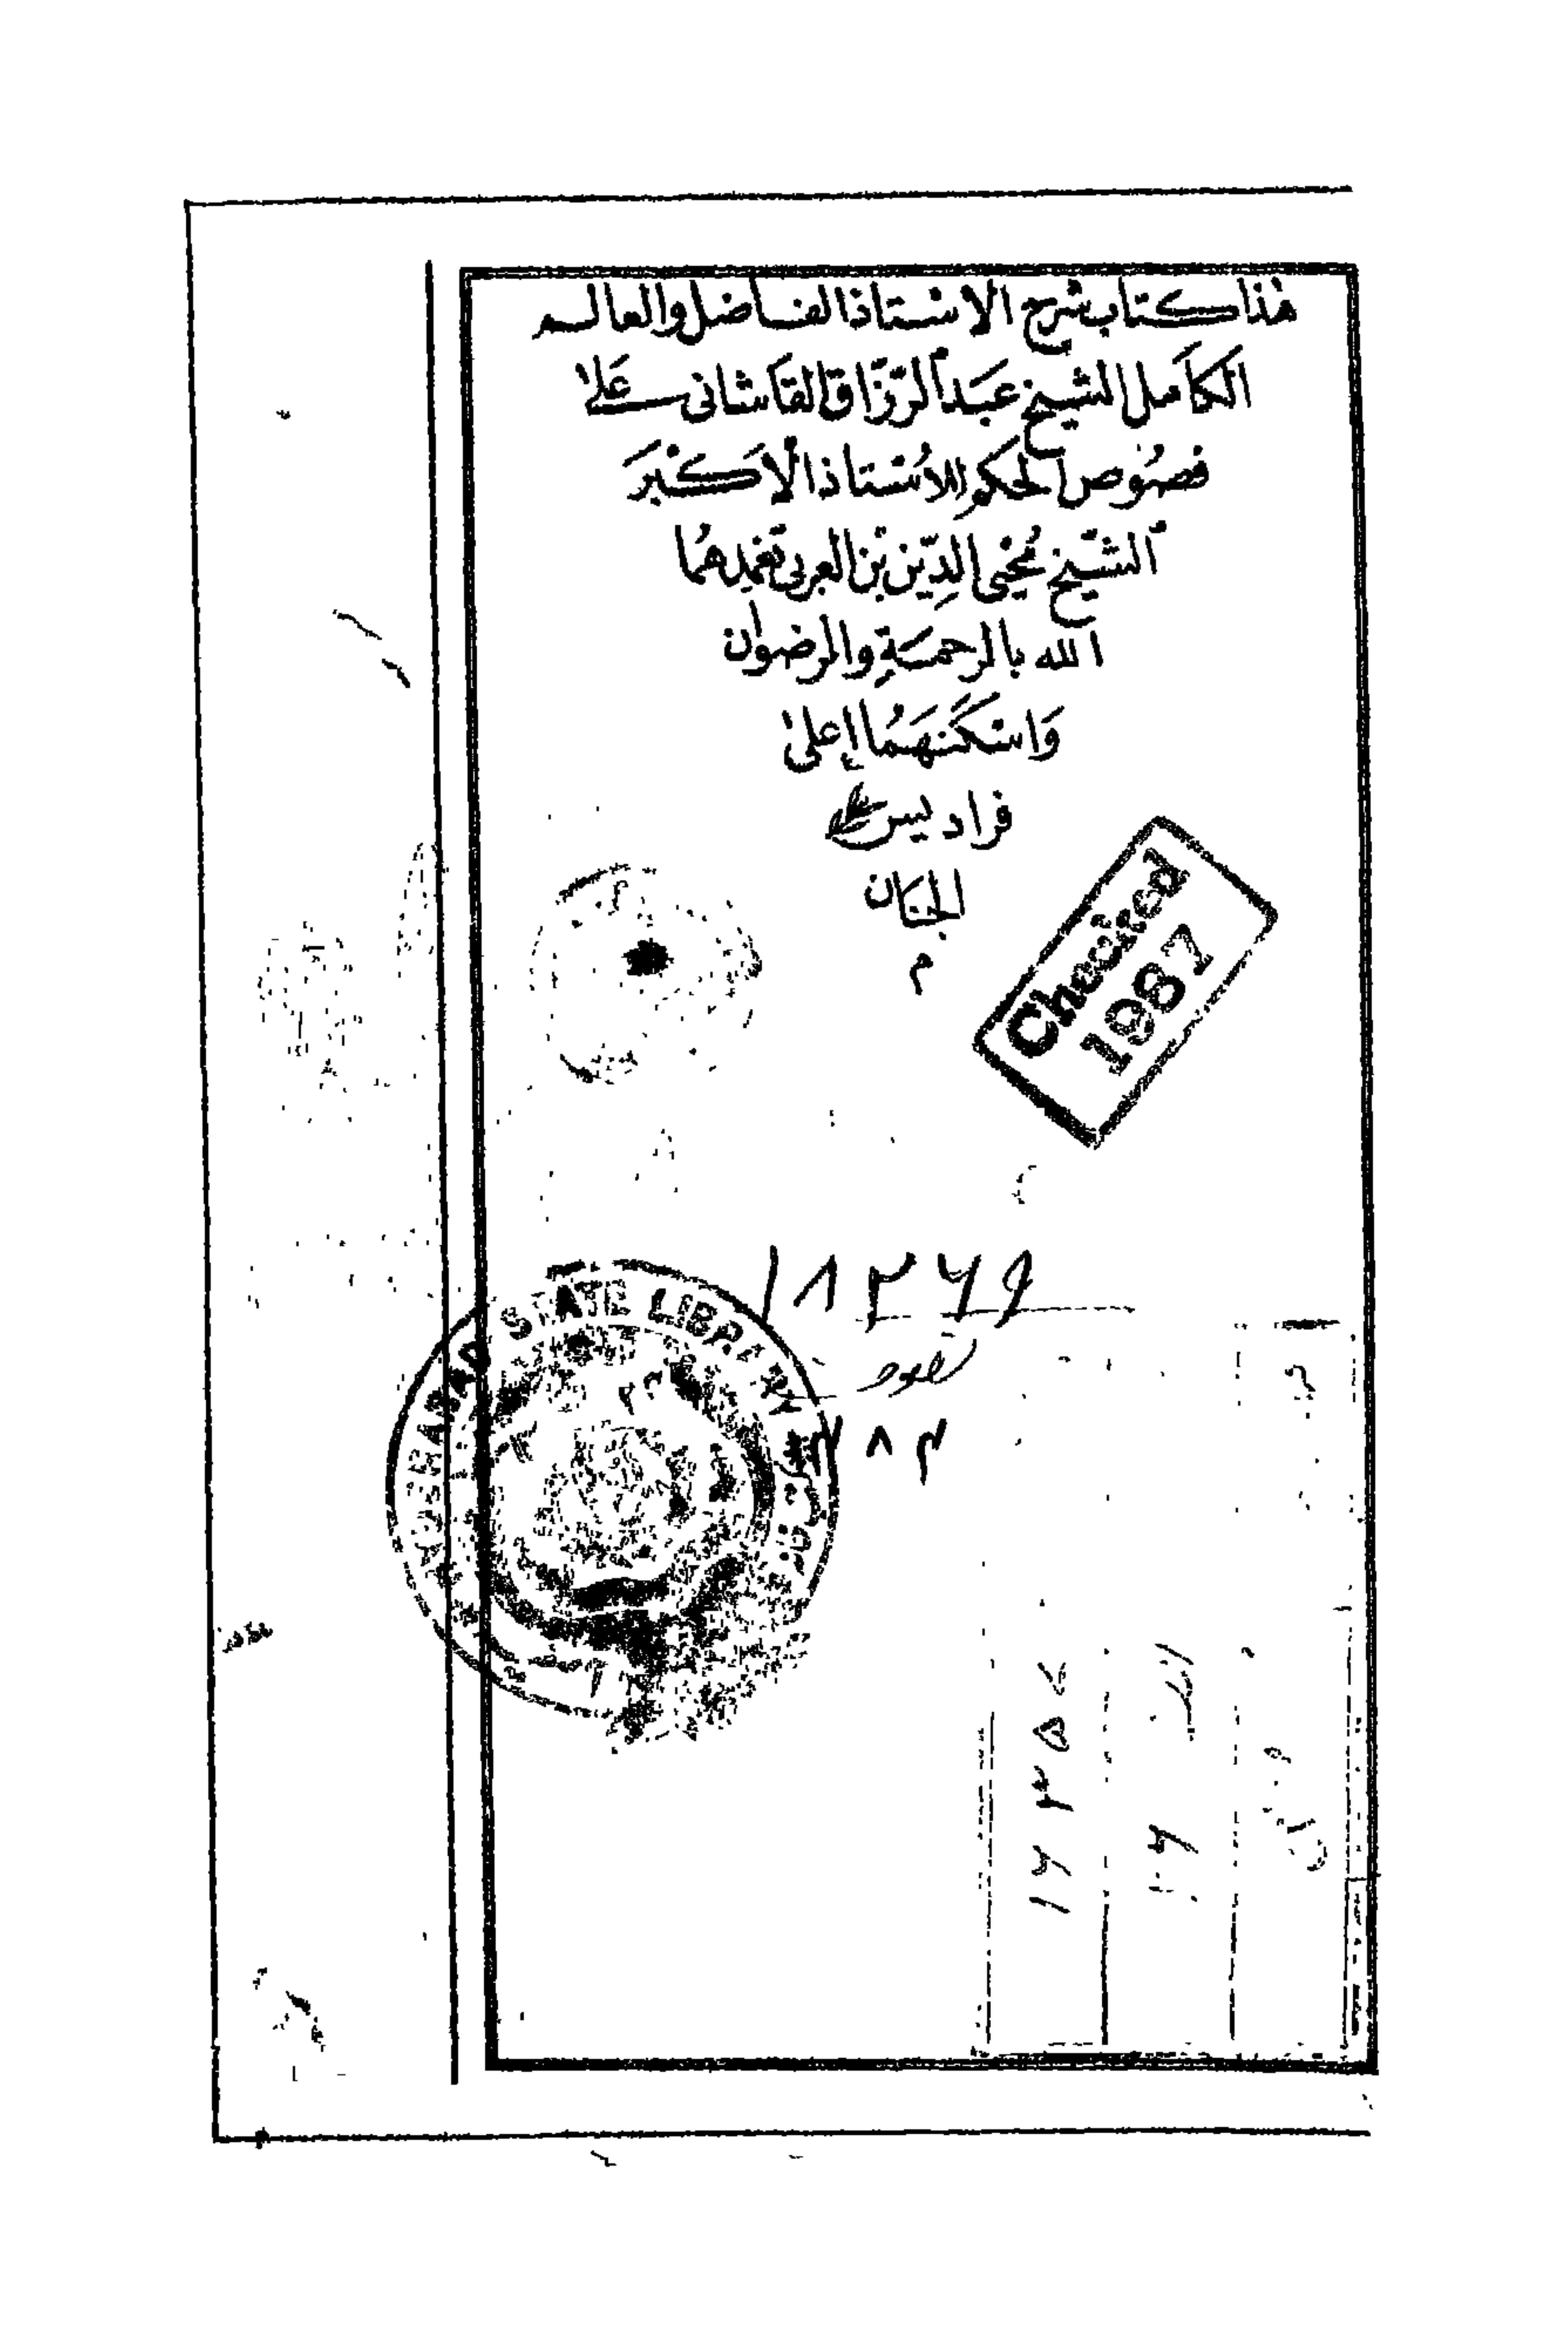 هذا كتاب شرح الاستاذ الفاضل والعالم
الكامل الشيخ عبد الرزاق القاشانى على
فصوص الحكم للاستاذ الاكبر
الشيخ محيى الدين بن العربى تغمدهما
الله بالرحمة والرضوان
واسكنهما اعلى
فراديس
الجنان
م
Checked
1987
۱۸۲۶۹
STATE LIBRARY